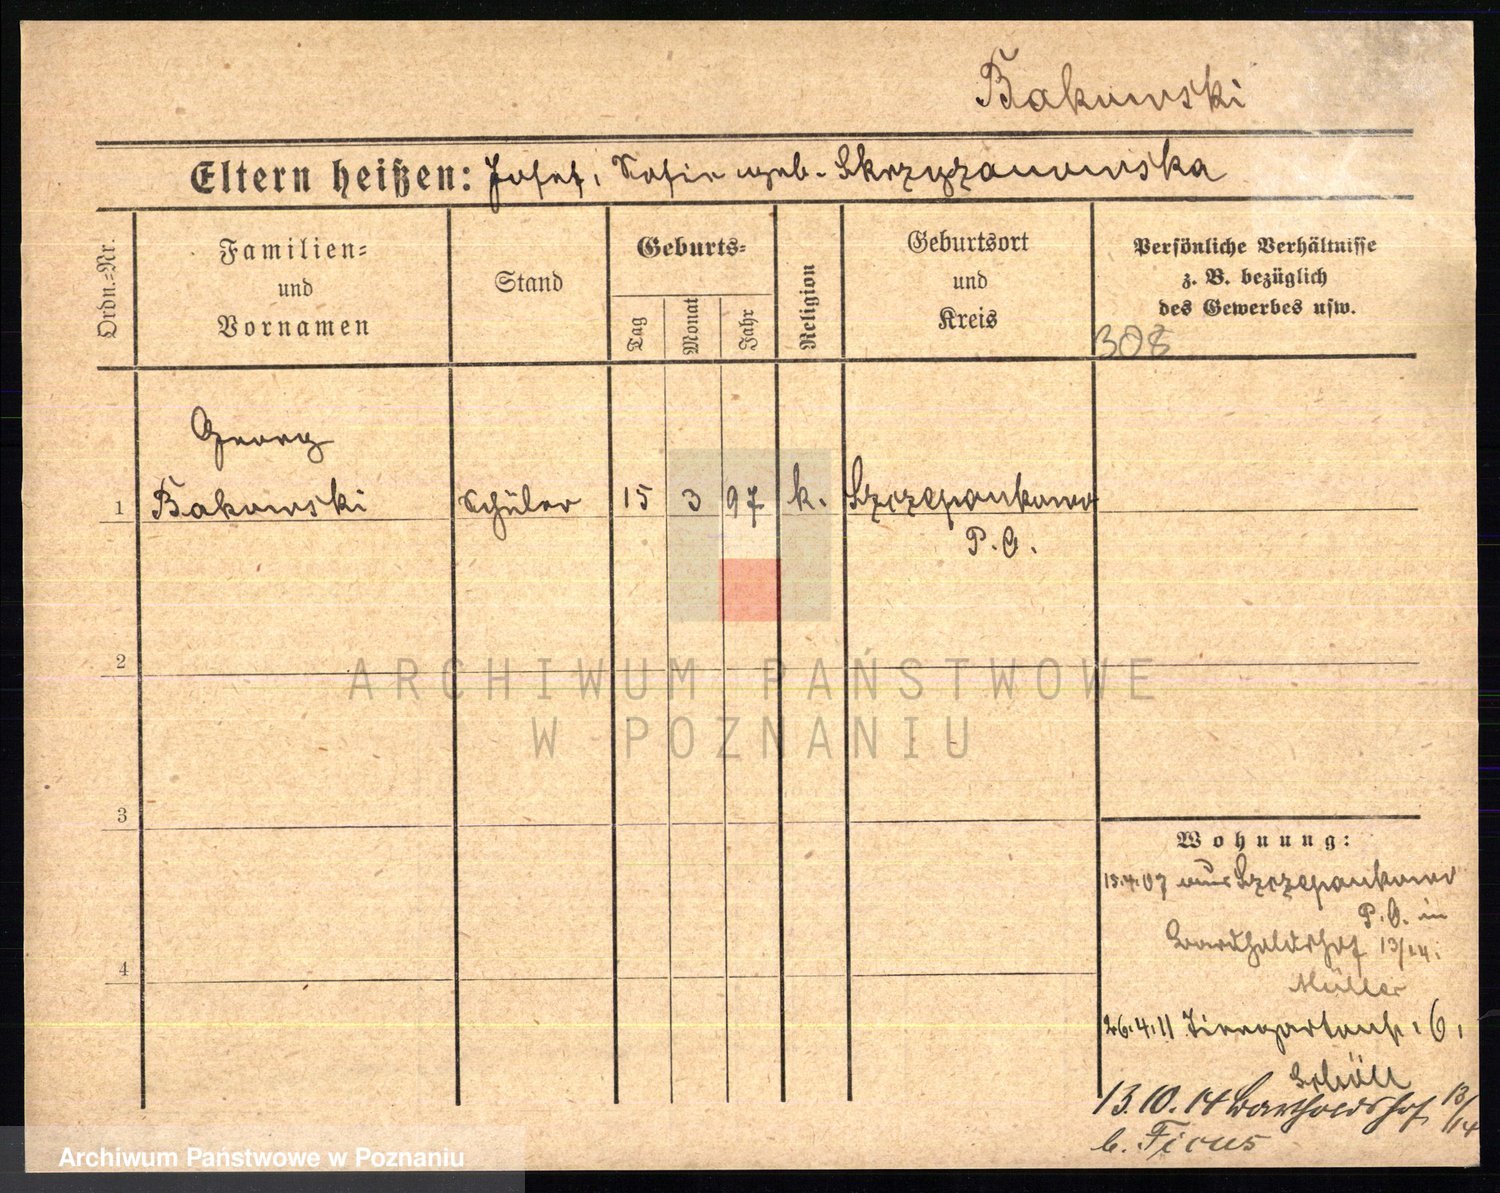 Bakowski
Eltern heißen: Josef, Sofie geb. Skrzyzanowska
Ordn.-Nr.
Familien-
und
Vornamen
Stand
Geburts-
Tag
Monat
Jahr
Religion
Geburtsort
und
Kreis
Persönliche Verhältnisse
z. B. bezüglich
des Gewerbes usw.
308
Georg
1 Bakowski Schüler 15 3 97 k. Szczepankowo
P. O.
2
ARCHIWUM PAŃSTWOWE
W POZNANIU
3
Wohnung:
15.4.07 aus Szczepankowo
P. O. in
Bartholdshof 13/14.
Müller
4
26.4.11 Tiergartenst. 6,
13.10.14 Bartholdshof 13/14
b. Ficus
Archiwum Państwowe w Poznaniu